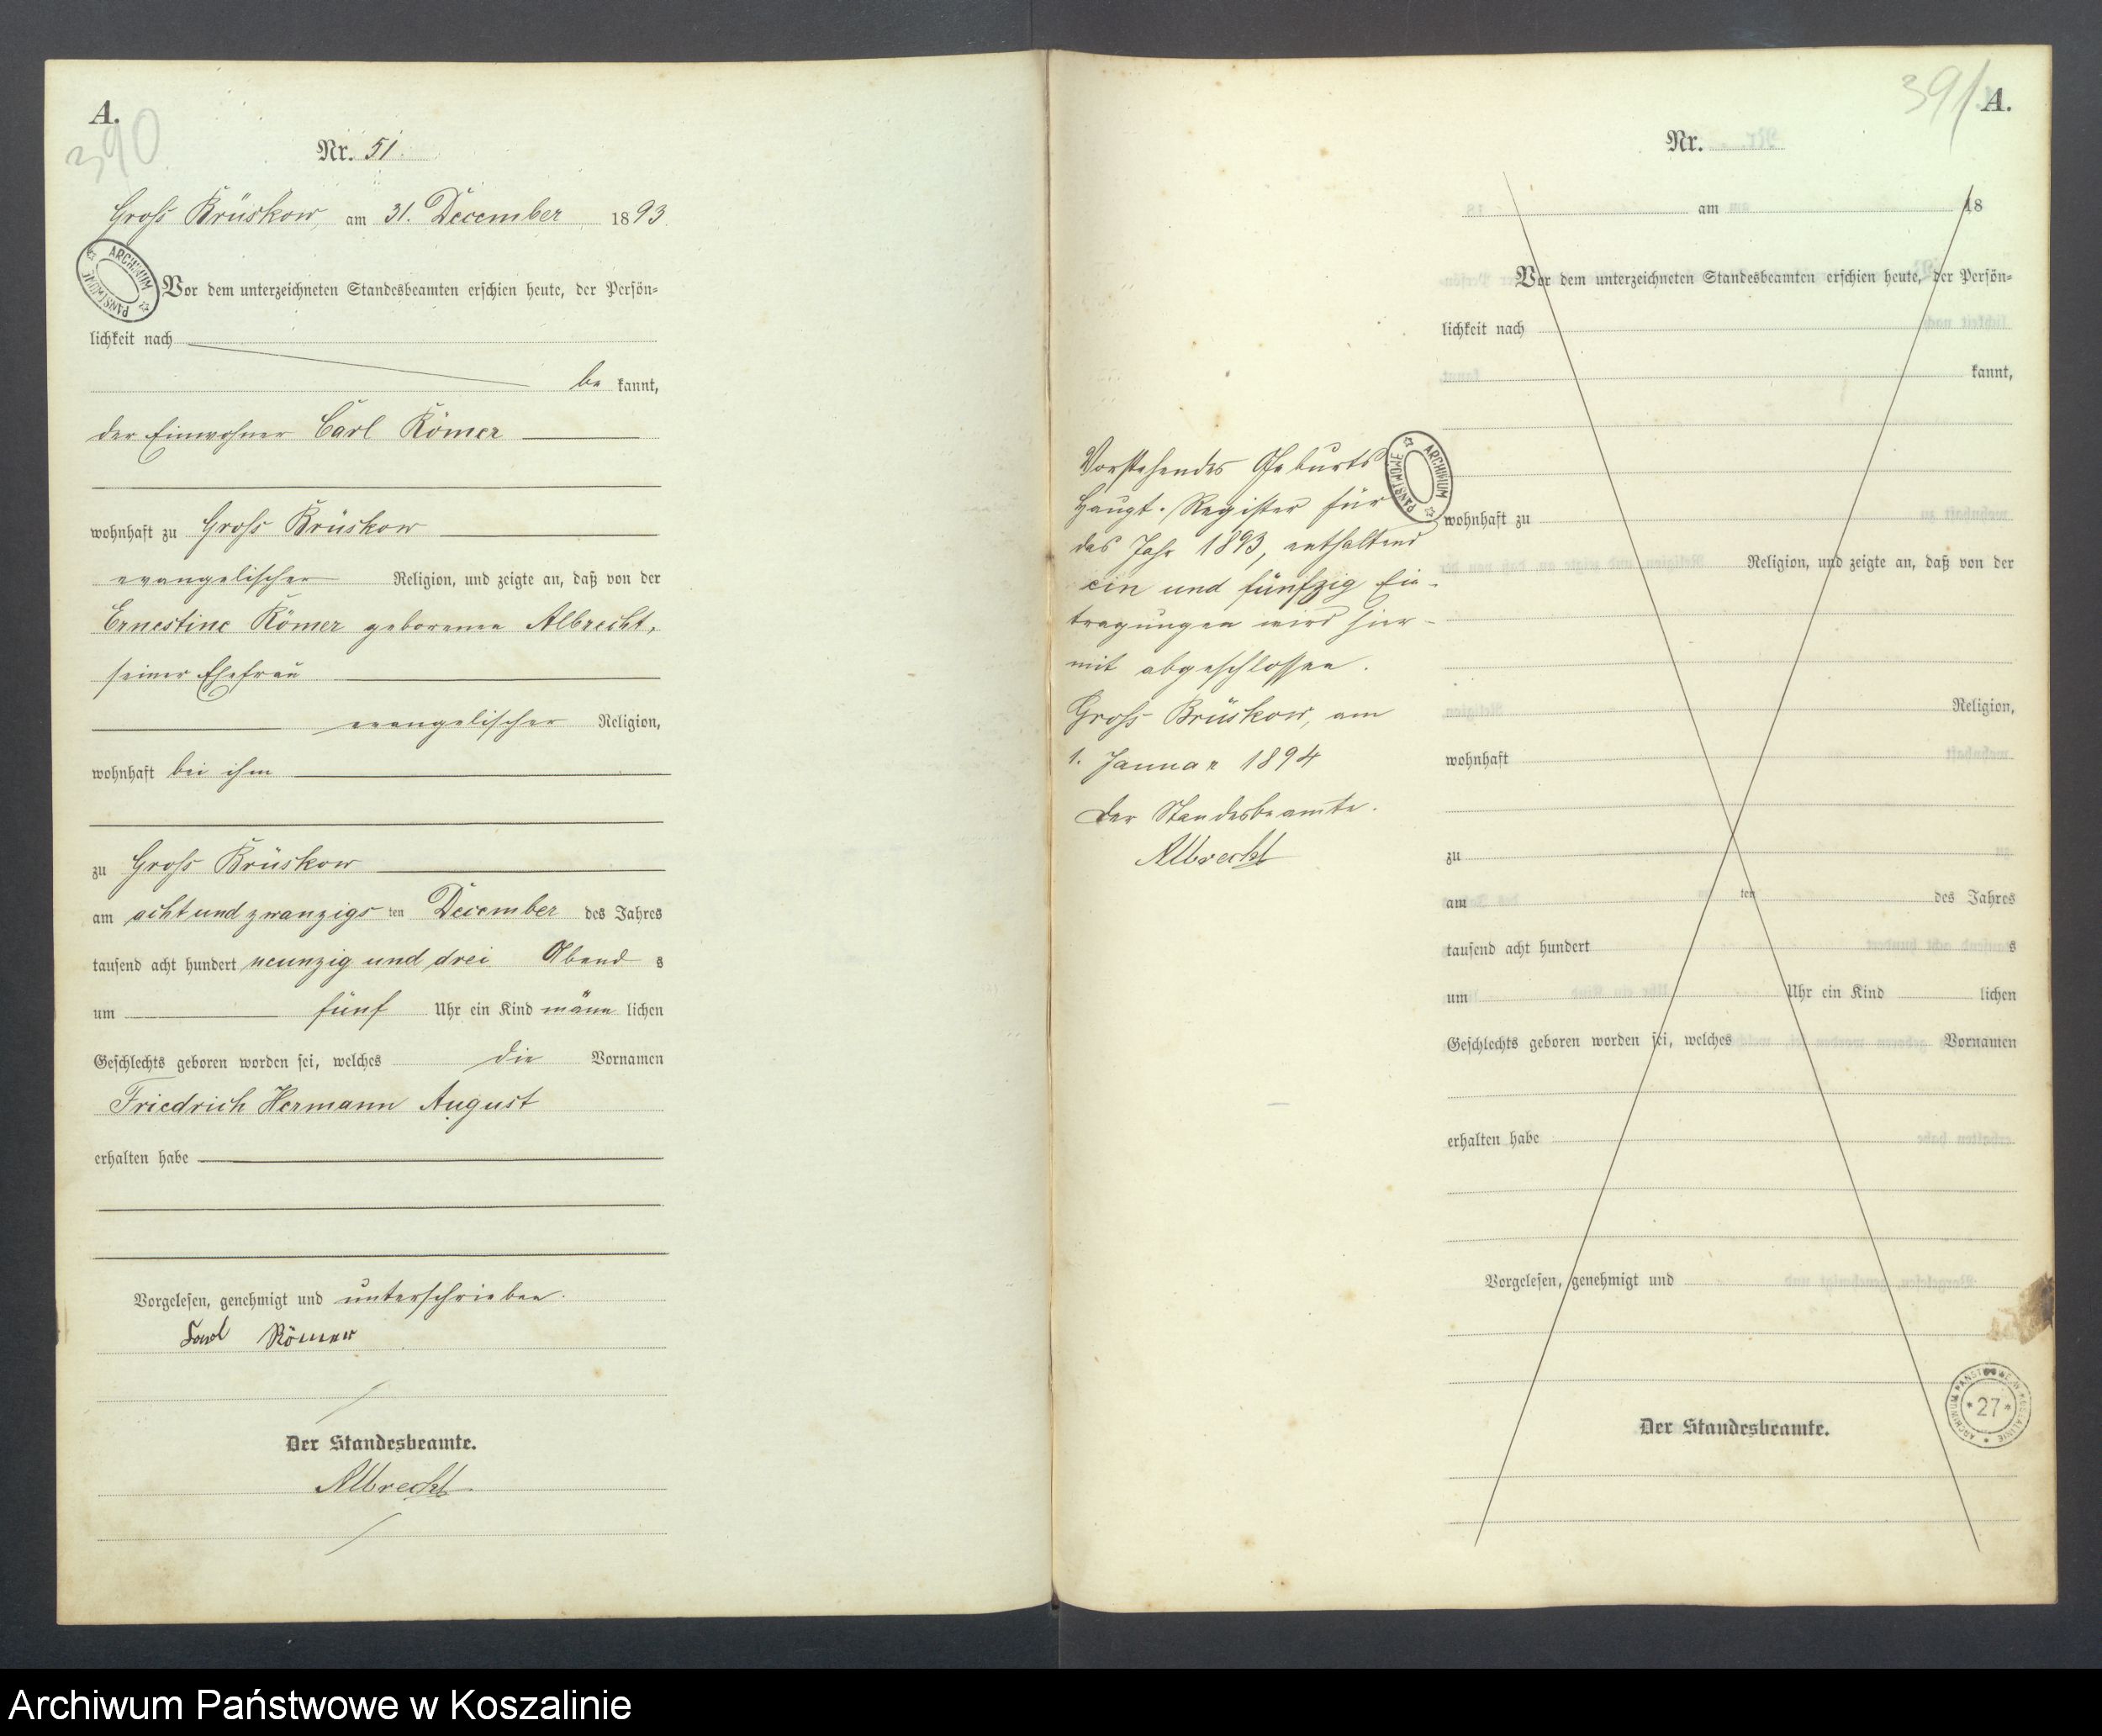 A.
390
Nr. 51.
Groß Brüskow, am 31. December 1893.
ARCHIWUM PAŃSTWOWE
Vor dem unterzeichneten Standesbeamten erschien heute, der Persön=
lichkeit nach
be kannt,
der Einwohner Carl Römer
wohnhaft zu Groß Brüskow
evangelischer Religion, und zeigte an, daß von der
Ernestine Römer geborenen Albrecht,
seiner Ehefrau
evangelischer Religion,
wohnhaft bei ihm
zu Groß Brüskow
am acht und zwanzigs ten December des Jahres
tausend acht hundert neunzig und drei Abend s
um fünf Uhr ein Kind männ lichen
Geschlechts geboren worden sei, welches die Vornamen
Friedrich Hermann August
erhalten habe
Vorgelesen, genehmigt und unterschrieben.
Carl Römer
Der Standesbeamte.
Albrecht
Vorstehendes Geburts
Haupt-Register für
das Jahr 1893, enthaltend
ein und fünfzig Ein-
tragungen wird hier-
mit abgeschlossen.
Groß Brüskow, am
1. Januar 1894
Der Standesbeamte.
Albrecht
ARCHIWUM PAŃSTWOWE
391
A.
Nr.
am 18
Vor dem unterzeichneten Standesbeamten erschien heute, der Persön=
lichkeit nach
kannt,
wohnhaft zu
Religion, und zeigte an, daß von der
Religion,
wohnhaft
zu
am ten des Jahres
tausend acht hundert s
um Uhr ein Kind lichen
Geschlechts geboren worden sei, welches Vornamen
erhalten habe
Vorgelesen, genehmigt und
ARCHIWUM PAŃSTWOWE W KOSZALINIE
*27*
Der Standesbeamte.
Archiwum Państwowe w Koszalinie